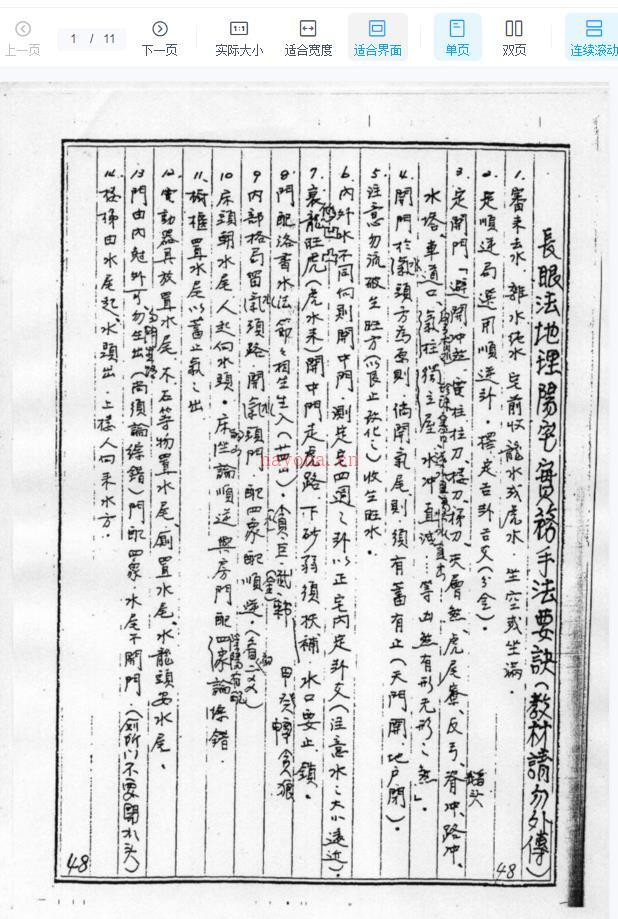 上一页
1 / 11
下一页
实际大小
适合宽度
适合界面
单页
双页
连续滚动
長眼法地理陽宅實務手法要訣(教材請勿外傳)
1. 審來去水、雜水純水、宅前收龍水或虎水、坐空或坐滿。
2. 是順逆局選用順逆卦,擇定吉卦吉爻(分金)。
3. 定開門「避開沖煞、電柱柱刀樓刀、天層煞、虎尾寮、反弓、脊沖、路沖、
墻头
水塔、車道口、氣柱、獨立屋、水沖、直流…等凶煞有形无形之煞」。
4. 開門於氣頭方為原則,倘開氣尾則須有蓄有止(天門開、地戶閉)。
水
5. 注意勿流破生旺方(以良止救化),收生旺水。
6. 內外水不同向則開中門,測定星四週之卦以正宅內定卦爻(注意水之大小遠近)。
7. 衰龍旺虎(虎水來)開中門走虎路,下砂弱須扶補,水口要止、鎖。
8. 門配洛書水法節節相生生入(廿四山)。貪、巨、武、輔
甲癸轉貪狼
9. 內部格局留氣頭路,開氣頭門,配四象、配順逆。
水
水
10. 床頭朝水尾人起向水頭。床坐論順逆與房門配四象論條錯。
11. 櫥櫃置水尾以蓄止氣之出
12. 電動器具放置水尾,不石等物置水尾,廁置水尾。水龍頭安水尾。
13. 門由內尅外可勿生出(尚須論條錯)門配四象、水尾不開門
14. 樓梯由水尾起、水頭出、上樓人向來水方。
48
48
nayona.cn